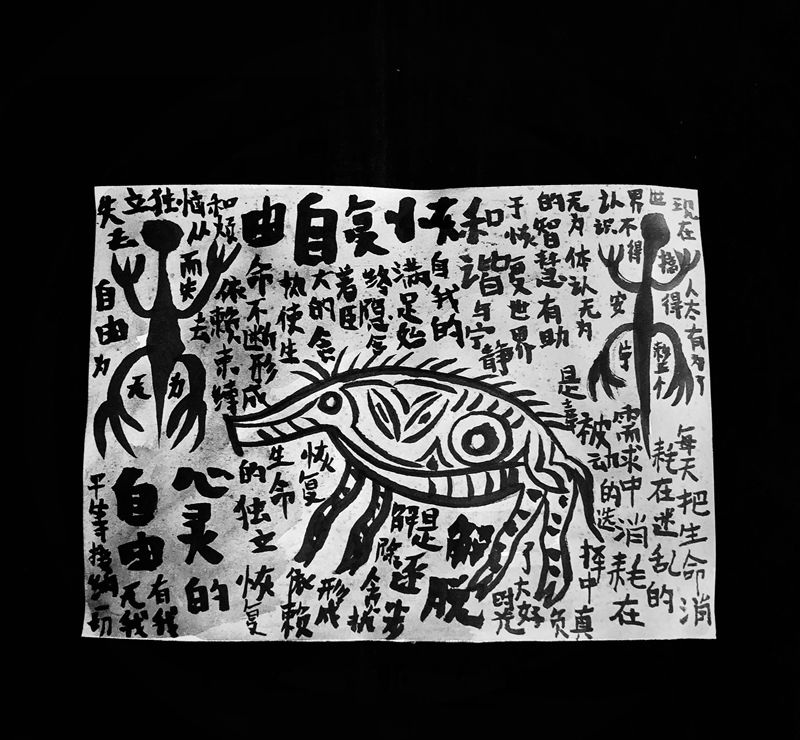 现在
人太有为了
搞得
整个
世
界不得
安宁
认识
无为体认无为
的智慧有助
于恢复世界
和谐与宁静
恢复自由
自我的
满足始
终隐含
着巨
大的贪
执使生
命不断形成
依赖束缚
和烦
恼从
而失去
独立
失去
自由
为
无为
每天把生命消
耗在迷乱的
需求中消耗在
被动的选
择中真
是辜
负
了大好
时光
解脱
是逐步
解除
贪执
形成
依赖
恢复
生命
的独立
恢复
心灵的
自由
有我
无我
平等接纳一切